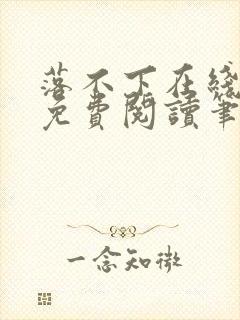 落不下在綫
免費閱讀筆
一念知微